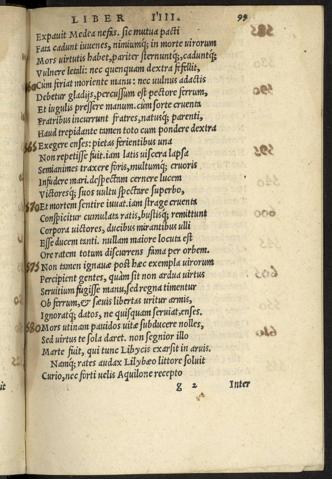 LIBER IIII. 99
Expauit Medea nefas. sic mutua pacti
Fata cadunt iuuenes, nimiumq; in morte uirorum
Mors uirtutis habet, pariter sternuntq;, caduntq;
Vulnere letali: nec quenquam dextra fefellit,
560 Cum feriat moriente manu: nec uulnus adactis
Debetur gladijs, percussum est pectore ferrum,
Et iugulis pressere manum. cum sorte cruenta
Fratribus incurrunt fratres, natusq; parenti,
Haud trepidante tamen toto cum pondere dextra
565 Exegere enses: pietas ferientibus una
Non repetisse fuit. iam latis uiscera lapsa
Semianimes traxere foris, multumq; cruoris
Infudere mari. despectum cernere lucem
Victoresq; suos uultu spectare superbo,
570 Et mortem sentire iuuat. iam strage cruenta
Conspicitur cumulata ratis, bustisq; remittunt
Corpora uictores, ducibus mirantibus ulli
Esse ducem tanti. nullam maiore locuta est
Ore ratem totum discurrens fama per orbem.
575 Non tamen ignauæ post hæc exempla uirorum
Percipient gentes, quàm sit non ardua uirtus
Seruitium fugisse manu, sed regna timentur
Ob ferrum, & sæuis libertas uritur armis,
Ignoratq; datos, ne quisquam seruiat, enses.
580 Mors utinam pauidos uitæ subducere nolles,
Sed uirtus te sola daret. non segnior illo
Marte fuit, qui tunc Libycis exarsit in aruis.
Namq; rates audax Lilybæo littore soluit
Curio, nec forti uelis Aquilone recepto
g 2 Inter
585
590
595
600
605
610